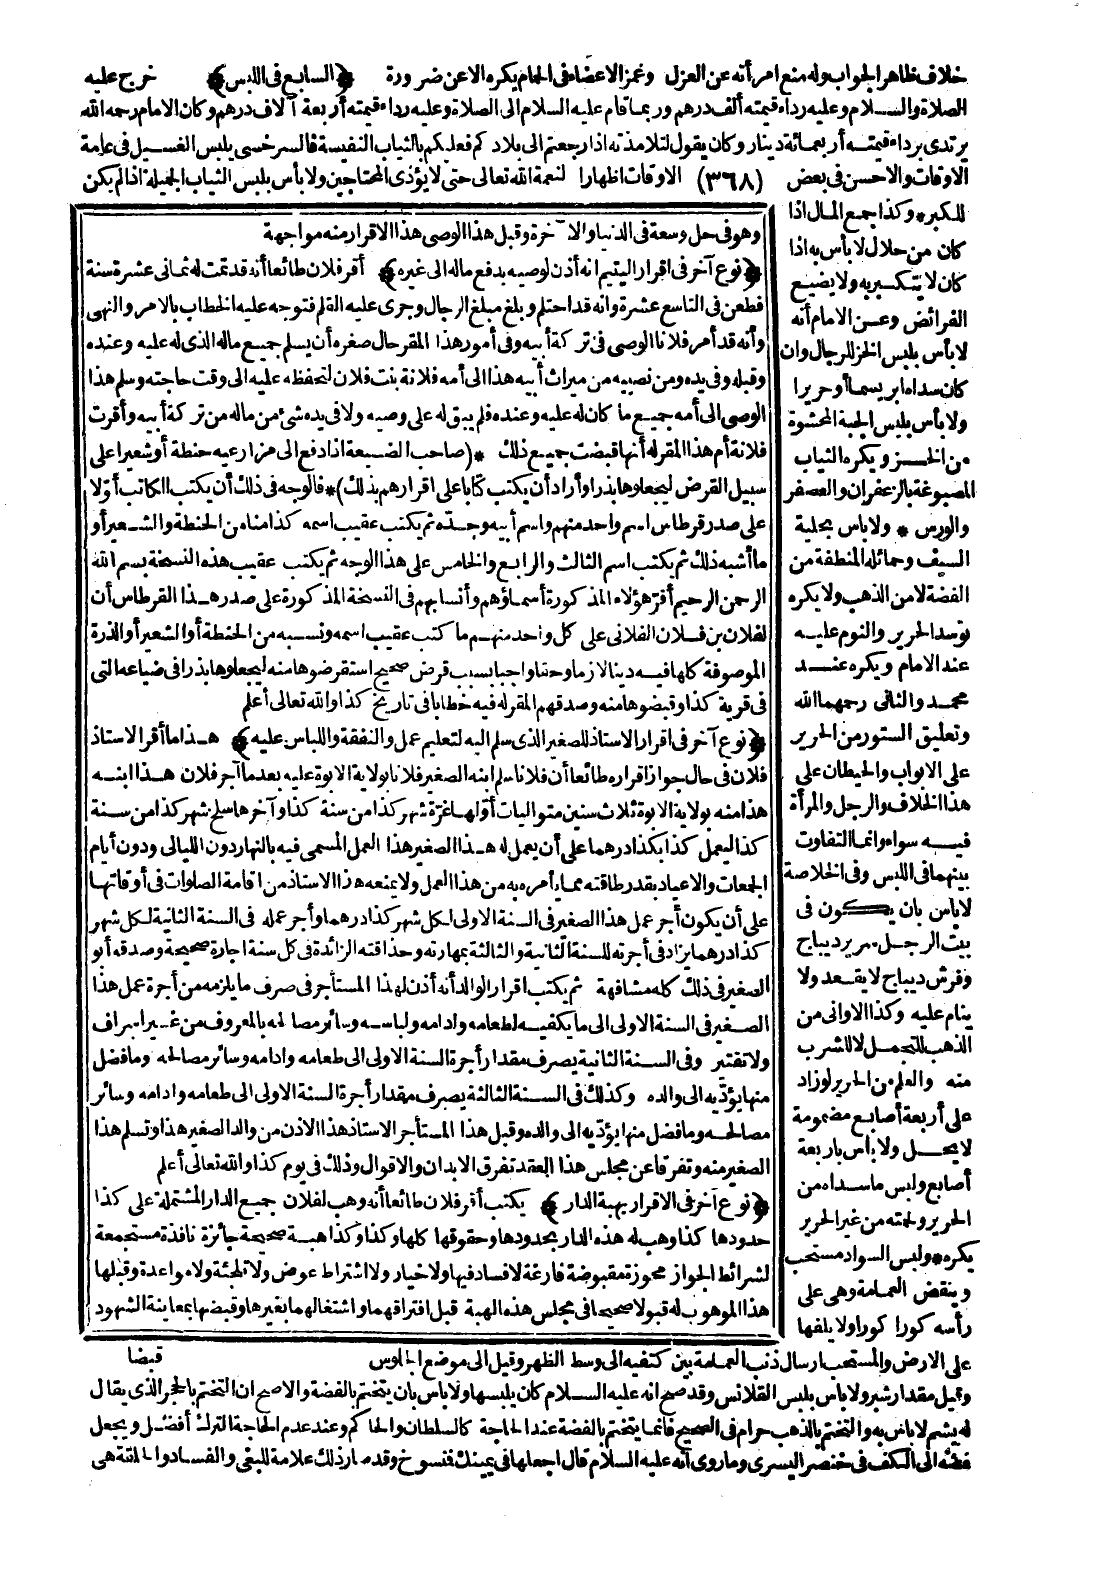 خلاف ظاهر الجواب وله منع امرأته عن العزل وغمز الاعضاء فى الحمام يكره الا عن ضرورة ﴿السابع فى اللبس﴾ خرج عليه
الصلاة والسلام وعليه رداء قيمته ألف درهم وربما قام عليه السلام الى الصلاة وعليه رداء قيمته أربعة آلاف درهم وكان الامام رحمه الله
يرتدى برداء قيمته أربعمائة دينار وكان يقول لتلامذته اذا رجعتم الى بلادكم فعليكم بالثياب النفيسة قال السرخسى يلبس الغسيل فى عامة
الاوقات والاحسن فى بعض (٣٦٨) الاوقات اظهارا لنعمة الله تعالى حتى لا يؤذى المحتاجين ولا بأس بلبس الثياب الجميلة اذا لم يكن
للكبر * وكذا جمع المال اذا
كان من حلال لا بأس به اذا
كان لا يتكبر به ولا يضيع
الفرائض وعن الامام أنه
لا بأس بلبس الخز للرجال وان
كان سداه ابريسما أو حريرا
ولا بأس بلبس الجبة المحشوة
من الخز ويكره الثياب
المصبوغة بالزعفران والعصفر
والورس * ولا باس بحلية
السيف وحمائله المنطقة من
الفضة لا من الذهب ولا يكره
توسد الحرير والنوم عليه
عند الامام ويكره عند
محمد والثانى رحمهما الله
وتعليق الستور من الحرير
على الابواب والحيطان على
هذا الخلاف والرجل والمرأة
فيه سواء وانما التفاوت
بينهما فى اللبس وفى الخلاصة
لا باس بان يكون فى
بيت الرجل سرير ديباج
وفرش ديباج لا يقعد ولا
ينام عليه وكذا الاوانى من
الذهب للتجمل لا للشرب
منه والعلم من الحرير لو زاد
على أربعة أصابع مضمومة
لا يحل ولا بأس باربعة
أصابع ولبس ما سداه من
الحرير ولحمته من غير الحرير
يكره * ولبس السواد مستحب
وينقض العمامة وهى على
رأسه كورا كورا ولا يلفها
على الارض والمستحب ارسال ذنب العمامة بين كتفيه الى وسط الظهر وقيل الى موضع الجلوس
وقيل مقدار شبر ولا باس بلبس القلانس وقد صح انه عليه السلام كان يلبسها ولا باس بان يتختم بالفضة والاصح ان التختم بالحجر الذى يقال
له يشم لا باس به والتختم بالذهب حرام فى الصحيح فانما يتختم بالفضة عند الحاجة كالسلطان والحاكم وعند عدم الحاجة الترك أفضل ويجعل
فصه الى الكف فى خنصر اليسرى وما روى أنه عليه السلام قال اجعلها فى يمينك فنسوخ وقد صار ذلك علامة للبغى والفساد والحلقة هى
وهو فى حل وسعة فى الدنيا والآخرة وقبل هذا الوصى هذا الاقرار منه مواجهة
﴿نوع آخر فى اقرار اليتيم انه أذن لوصيه بدفع ماله الى غيره﴾ أقر فلان طائعا أنه قد تمت له ثمانى عشرة سنة
فطعن فى التاسع عشرة وانه قد احتلم وبلغ مبلغ الرجال وجرى عليه القلم فتوجه عليه الخطاب بالامر والنهى
وأنه قد أمر فلانا الوصى فى تركة أبيه وفى أمور هذا المقر حال صغره أن يسلم جميع ماله الذى له عليه وعنده
وقبله وفى يده ومن نصيبه من ميراث أبيه هذا الى أمه فلانة بنت فلان لتحفظه عليه الى وقت حاجته وسلم هذا
الوصى الى أمه جميع ما كان له عليه وعنده فلم يبق له على وصيه ولا فى يده شئ من ماله من تركة أبيه وأقرت
فلانة أم هذا المقر له أنها قبضت جميع ذلك * (صاحب الضيعة اذا دفع الى مزارعيه حنطة أو شعيرا على
سبيل القرض ليجعلوها بذرا وأراد أن يكتب كتابا على اقرارهم بذلك) * فالوجه فى ذلك أن يكتب الكاتب أولا
على صدر قرطاس اسم واحد منهم واسم أبيه وجده ثم يكتب عقيب اسمه كذا منا من الحنطة والشعير أو
ما أشبه ذلك ثم يكتب اسم الثالث والرابع والخامس على هذا الوجه ثم يكتب عقيب هذه النسخة بسم الله
الرحمن الرحيم أقر هؤلاء المذكورة أسماؤهم وأنسابهم فى النسخة المذكورة على صدر هذا القرطاس أن
لفلان بن فلان الفلانى على كل واحد منهم ما كتب عقيب اسمه ونسبه من الحنطة أو الشعير أو الذرة
الموصوفة كلها فيه دينا لازما وحقا واجبا بسبب قرض صحيح استقرضوها منه ليجعلوها بذرا فى ضياعه التى
فى قرية كذا وقبضوها منه وصدقهم المقر له فيه خطابا فى تاريخ كذا والله تعالى أعلم
﴿نوع آخر فى اقرار الاستاذ للصغير الذى سلم اليه لتعليم عمل والنفقة واللباس عليه﴾ هذا ما أقر الاستاذ
فلان فى حال جواز اقراره طائعا أن فلانا سلم ابنه الصغير فلانا بولاية الابوة عليه بعدما آجر فلان هذا ابنه
هذا منه بولاية الابوة ثلاث سنين متواليات أولها غرة شهر كذا من سنة كذا وآخرها سلخ شهر كذا من سنة
كذا ليعمل كذا بكذا درهما على أن يعمل له هذا الصغير هذا العمل المسمى فيه بالنهار دون الليالى ودون أيام
الجمعات والاعياد بقدر طاقته مما يأمره به من هذا العمل ولا يمنعه هذا الاستاذ من اقامة الصلوات فى أوقاتها
على أن يكون أجر عمل هذا الصغير فى السنة الاولى لكل شهر كذا درهما وأجر عمله فى السنة الثانية لكل شهر
كذا درهما يزاد فى أجرته للسنة الثانية والثالثة بمهارته وحذاقته الزائدة فى كل سنة اجارة صحيحة وصدقه أبو
الصغير فى ذلك كله مشافهة ثم يكتب اقرار الوالد أنه أذن لهذا المستأجر فى صرف ما يلزمه من أجرة عمل هذا
الصغير فى السنة الاولى الى ما يكفيه لطعامه وادامه ولباسه وسائر مصالحه بالمعروف من غير اسراف
ولا تقتير وفى السنة الثانية يصرف مقدار أجرة السنة الاولى الى طعامه وادامه وسائر مصالحه وما فضل
منها يؤديه الى والده وكذلك فى السنة الثالثة يصرف مقدار أجرة السنة الاولى الى طعامه وادامه وسائر
مصالحه وما فضل منها يؤديه الى والده وقبل هذا المستأجر الاستاذ هذا الاذن من والد الصغير هذا وتسلم هذا
الصغير منه وتفرقا عن مجلس هذا العقد تفرق الابدان والاقوال وذلك فى يوم كذا والله تعالى أعلم
﴿نوع آخر فى الاقرار بهبة الدار﴾ يكتب أقر فلان طائعا أنه وهب لفلان جميع الدار المشتملة على كذا
حدودها كذا وهب له هذه الدار بحدودها وحقوقها كلها وكذا وكذا هبة صحيحة جائزة نافذة مستجمعة
لشرائط الجواز محوزة مقبوضة فارغة لا فساد فيها ولا خيار ولا اشتراط عوض ولا تلجئة ولا مواعدة وقبلها
هذا الموهوب له قبولا صحيحا فى مجلس هذه الهبة قبل افتراقهما واشتغالهما بغيرها وقبضها بمعاينة الشهود
قبضا